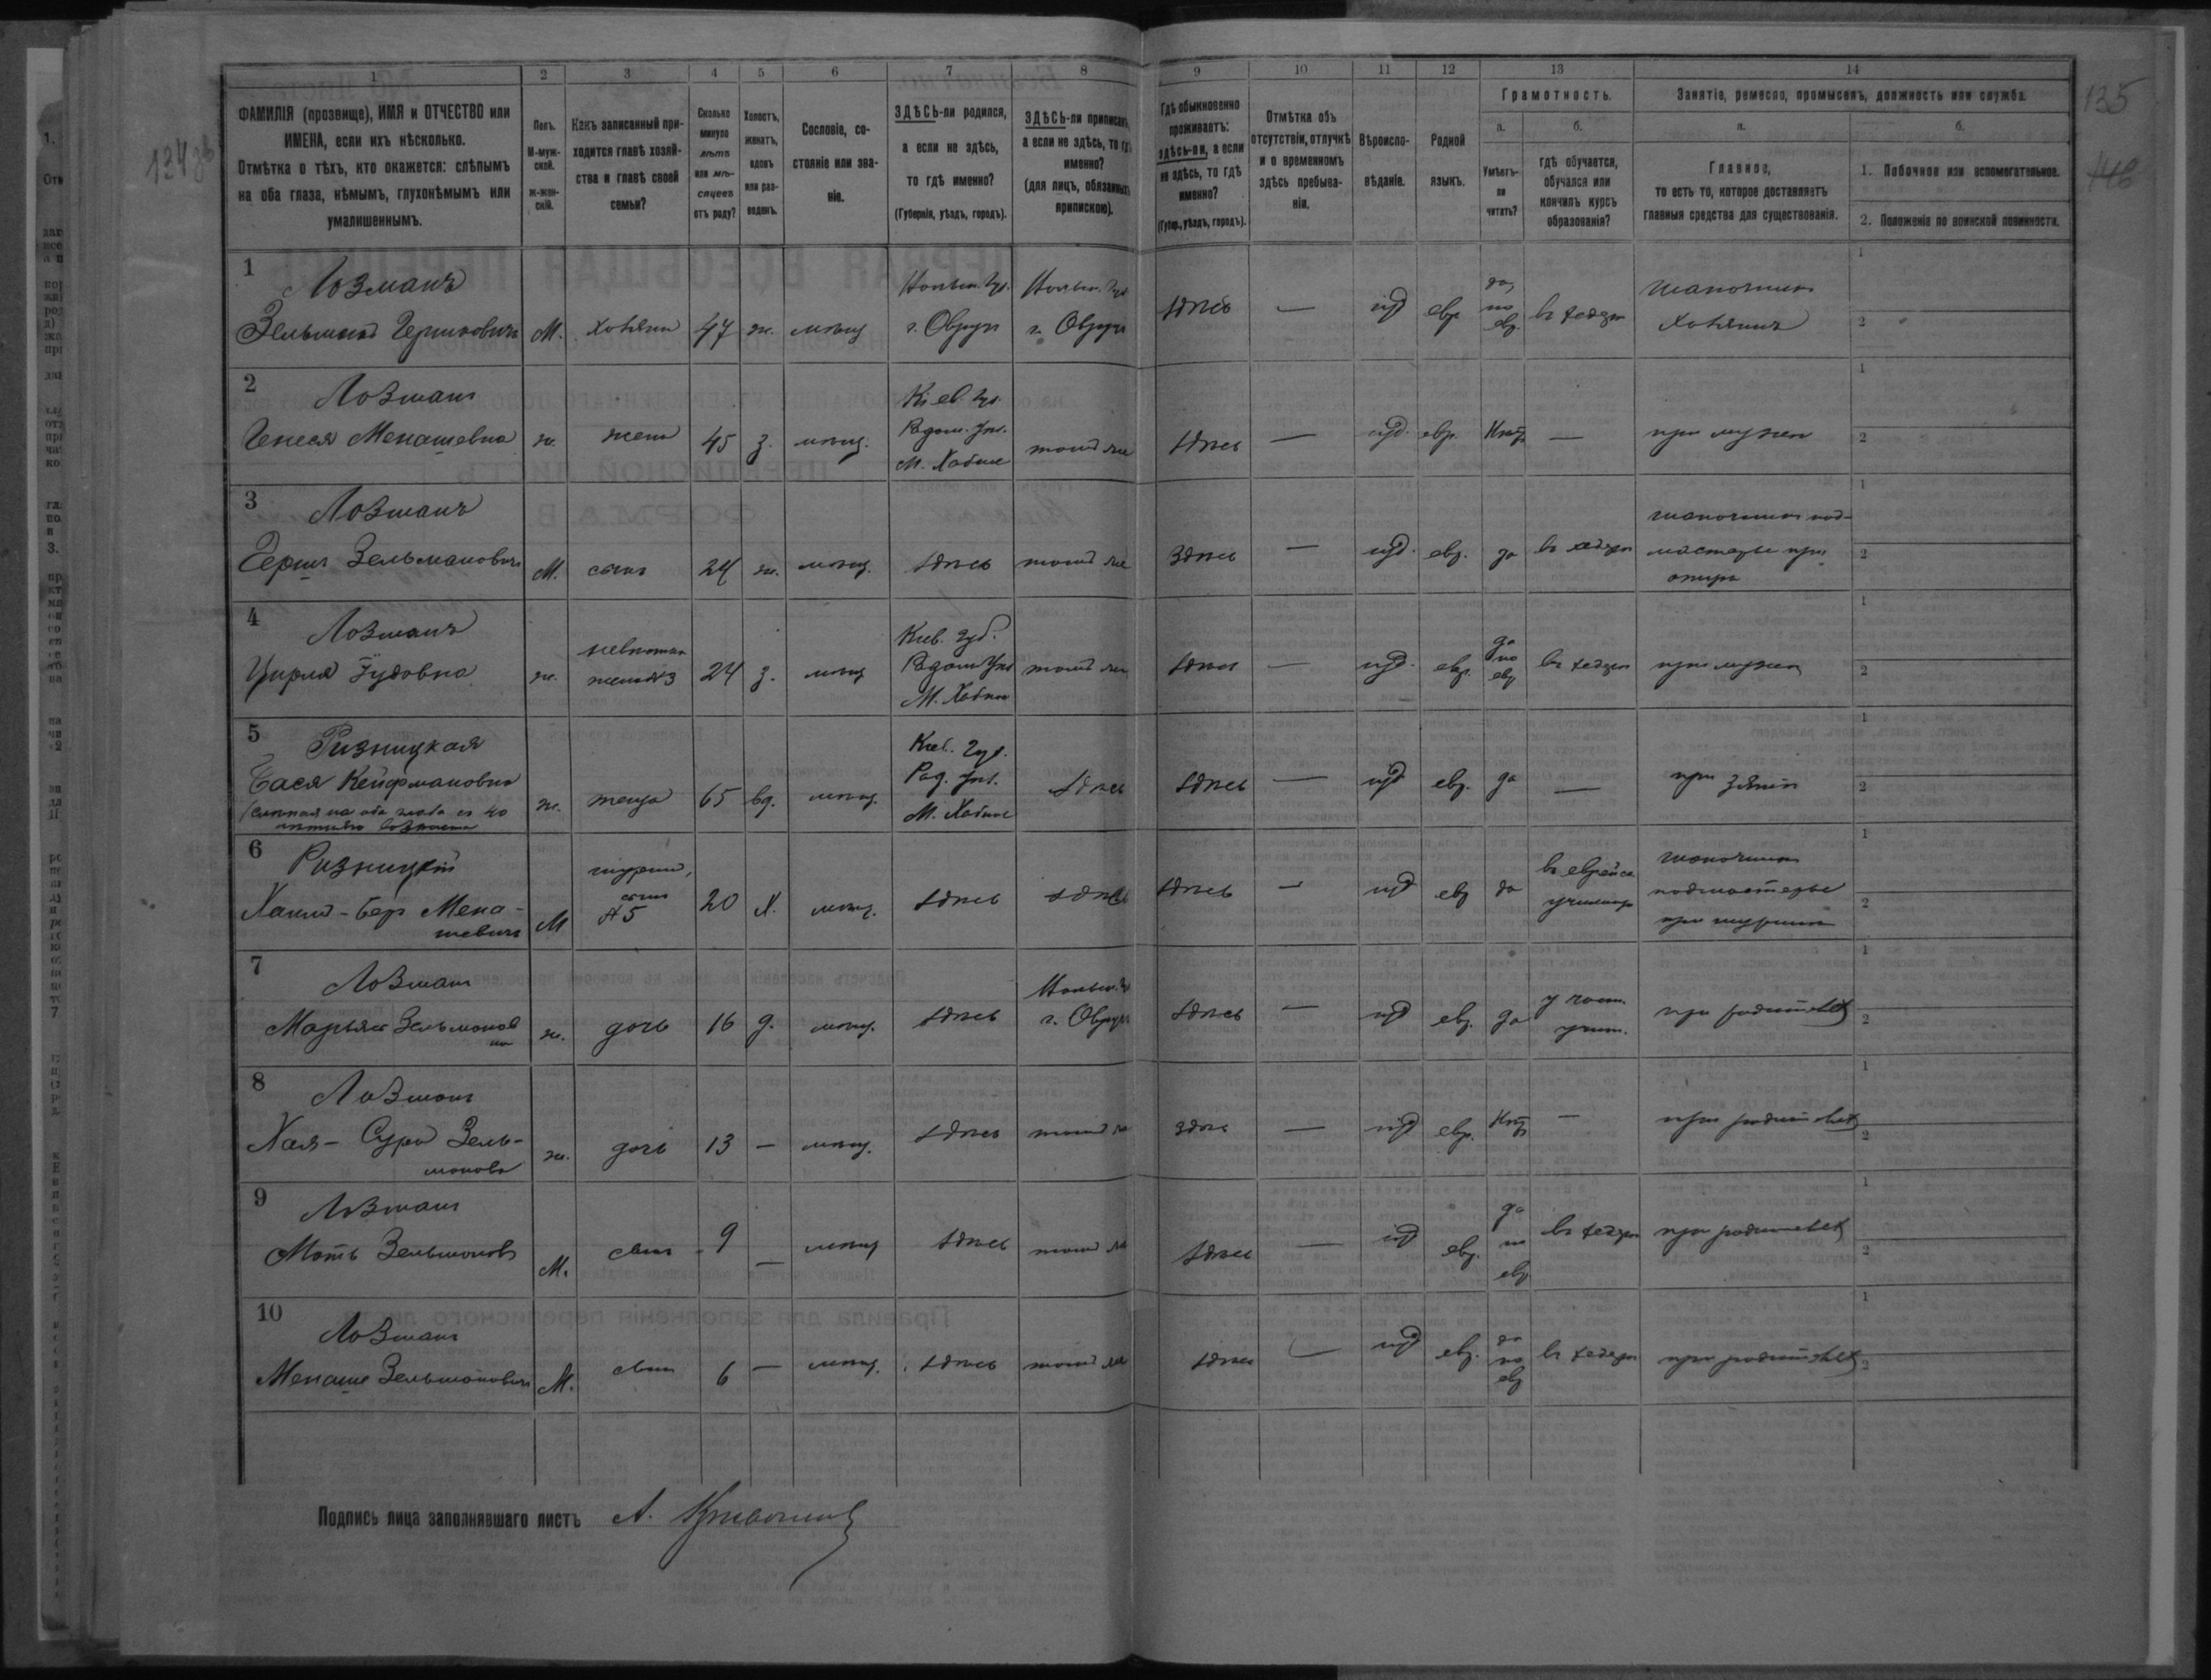 134 об
135
146
1 2 3 4 5 6 7 8 9 10 11 12 13 14
ФАМИЛІЯ (прозвище), ИМЯ и ОТЧЕСТВО или ИМЕНА, если ихъ нѣсколько.
Отмѣтка о тѣхъ, кто окажется: слѣпымъ на оба глаза, нѣмымъ, глухонѣмымъ или умалишеннымъ.
Полъ. М-мужской. ж-женскій.
Какъ записанный приходится главѣ хозяйства и главѣ своей семьи?
Сколько минуло лѣтъ или мѣсяцевъ отъ роду?
Холостъ, женатъ, вдовъ или разведенъ.
Сословіе, состояніе или званіе.
ЗДѢСЬ-ли родился, а если не здѣсь, то гдѣ именно? (Губернія, уѣздъ, городъ).
ЗДѢСЬ-ли приписанъ, а если не здѣсь, то гдѣ именно? (для лицъ, обязанныхъ припискою).
Гдѣ обыкновенно проживаетъ: здѣсь-ли, а если не здѣсь, то гдѣ именно? (Губер., уѣздъ, городъ).
Отмѣтка объ отсутствіи, отлучкѣ и о временномъ здѣсь пребываніи.
Вѣроисповѣданіе.
Родной языкъ.
Грамотность.
а. Умѣетъ-ли читать?
б. гдѣ обучается, обучался или кончилъ курсъ образованія?
Занятіе, ремесло, промыселъ, должность или служба.
а. Главное, то есть то, которое доставляетъ главныя средства для существованія.
б.
1. Побочное или вспомогательное.
2. Положеніе по воинской повинности.
1 Лозманъ
Зельманъ Гершковичъ М. хозяин 47 ж. мѣщ Волын. губ. г. Овручъ Волын. губ г. Овручъ здѣсь — иуд евр. да, по евр. въ хедерѣ шапочникъ хозяинъ
2 Лозманъ
Генеся Менашевна ж. жена 45 з. мѣщ. Кіев. губ. Радом. уѣз. М. Хабное тамъ же здѣсь — иуд. евр. Нѣтъ — при мужѣ
3 Лозманъ
Гершъ Зельмановичъ М. сынъ 24 ж. мѣщ. здѣсь тамъ же здѣсь — иуд. евр. да въ хедерѣ шапочникъ подмастерье при отцѣ
4 Лозманъ
Цирля Іудовна ж. невѣстка жена №3 24 з. мѣщ Кіев. губ. Радом уѣз М. Хабно тамъ же здѣсь — иуд. евр. да по евр въ хедерѣ при мужѣ
5 Ризницкая
Бася Кейфмановна (слѣпая на оба глаза съ 40 лѣтняго возраста ж. теща 65 вд. мѣщ. Кіев. губ. Рад. уѣз. М. Хабное здѣсь здѣсь — иуд евр. да — при зятѣ
6 Ризницкій
Хаим-Бер Менашевичъ М шуринъ, сынъ №5 20 х. мѣщ. здѣсь здѣсь здѣсь — иуд евр да въ еврейск училищѣ шапочникъ подмастерье при шуринѣ
7 Лозманъ
Марьяся Зельмановна ж. дочь 16 д. мѣщ. здѣсь Волын. г. Овручъ здѣсь — иуд евр. да у част. учит. при родителяхъ
8 Лозманъ
Хая-Сура Зельманова ж. дочь 13 — мѣщ. здѣсь тамъ же здѣсь — иуд евр. Нѣтъ — при родителяхъ
9 Лозманъ
Моть Зельмановъ М. сынъ 9 — мѣщ здѣсь тамъ же здѣсь — иуд евр. да по евр въ хедерѣ при родителяхъ
10 Лозманъ
Менаше Зельмановичъ М. сынъ 6 — мѣщ. здѣсь тамъ же здѣсь — иуд евр. да по евр въ хедерѣ при родителяхъ
Подпись лица заполнявшаго листъ А.